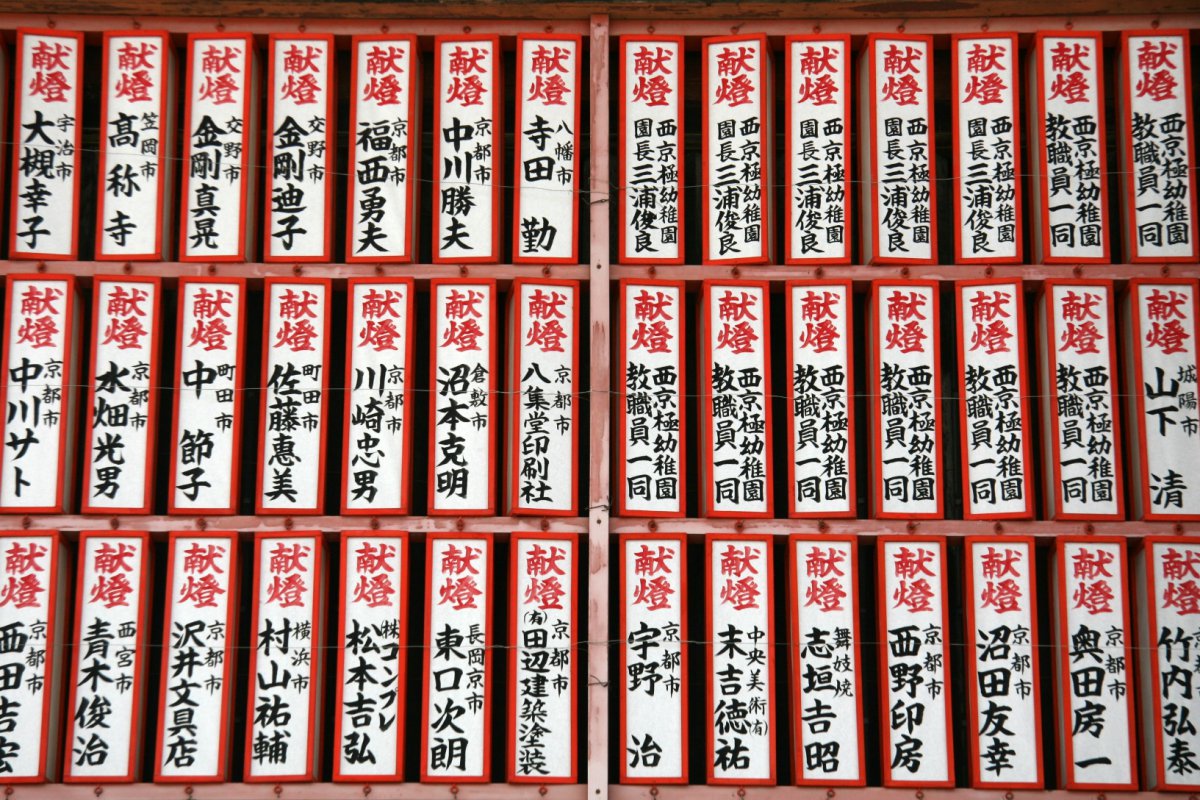 献燈
西京極幼稚園
教職員一同
献燈
西京極幼稚園
教職員一同
献燈
西京極幼稚園
園長三浦俊良
献燈
西京極幼稚園
園長三浦俊良
献燈
西京極幼稚園
園長三浦俊良
献燈
西京極幼稚園
園長三浦俊良
献燈
西京極幼稚園
園長三浦俊良
献燈
八幡市
寺田 勤
献燈
京都市
中川勝夫
献燈
京都市
福西勇夫
献燈
交野市
金剛迪子
献燈
交野市
金剛真晃
献燈
笠岡市
髙称寺
献燈
宇治市
大槻幸子
献燈
城陽市
山下 清
献燈
西京極幼稚園
教職員一同
献燈
西京極幼稚園
教職員一同
献燈
西京極幼稚園
教職員一同
献燈
西京極幼稚園
教職員一同
献燈
西京極幼稚園
教職員一同
献燈
西京極幼稚園
教職員一同
献燈
京都市
八集堂印刷社
献燈
倉敷市
沼本克明
献燈
京都市
川崎忠男
献燈
町田市
佐藤恵美
献燈
町田市
中 節子
献燈
京都市
水畑光男
献燈
京都市
中川サト
献燈
竹内弘泰
献燈
京都市
奥田房一
献燈
京都市
沼田友幸
献燈
京都市
西野印房
献燈
舞妓焼
志垣吉昭
献燈
中央美術(有)
末吉徳祐
献燈
京都市
宇野 治
献燈
京都市
(有)田辺建築塗装
献燈
長岡京市
東口次朗
献燈
株コンプレ
松本吉弘
献燈
横浜市
村山祐輔
献燈
京都市
沢井文具店
献燈
西宮市
青木俊治
献燈
京都市
西田吉宏